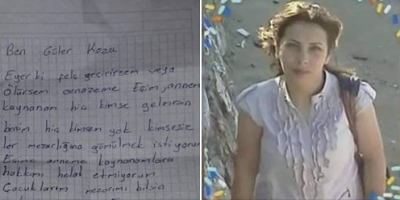 Ben Güler Kozu
Eğer ki felç geçirirsem veya
Ölürsem cenazeme Eşim, annem
kaynanam hiç kimse gelmesin
benim hiç kimsem yok kimsesiz
ler mezarlığına gömülmek istiyorum
Eşime anneme kaynanamlara
hakkımı helal etmiyorum
Çocuklarım mezarımı bilsin